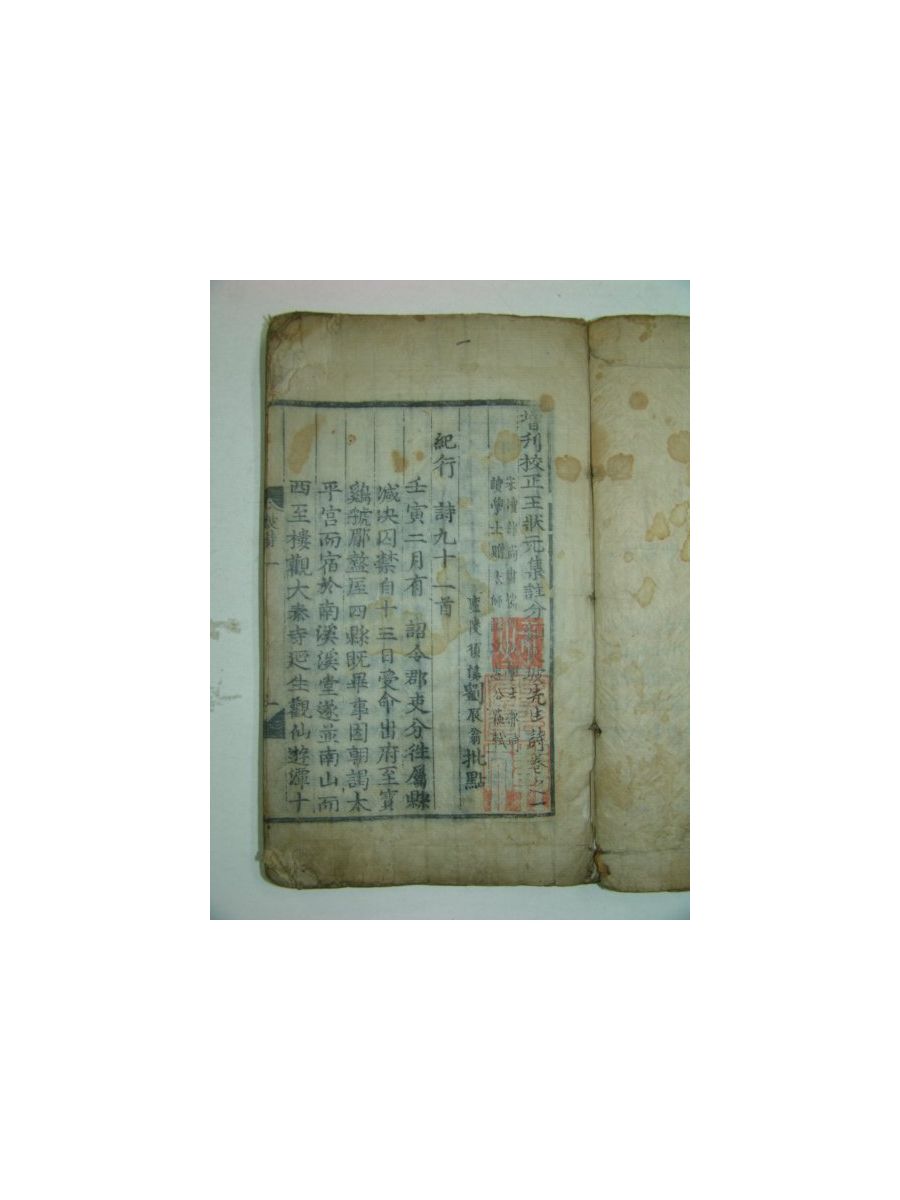 一
增刊校正王狀元集註分類東坡先生詩卷之一
宋禮部尚書端明殿學士兼侍
讀學士贈太師諡文忠公蘇軾
廬陵須溪劉辰翁批點
紀行 詩九十一首
壬寅二月有 詔令郡吏分徃屬縣
減决囚禁自十三日受命出府至寶
鷄虢郿盩厔四縣既畢事因朝謁太
平宮而宿於南溪溪堂遂並南山而
西至樓觀大秦寺延生觀仙遊潭十
坡詩一
一